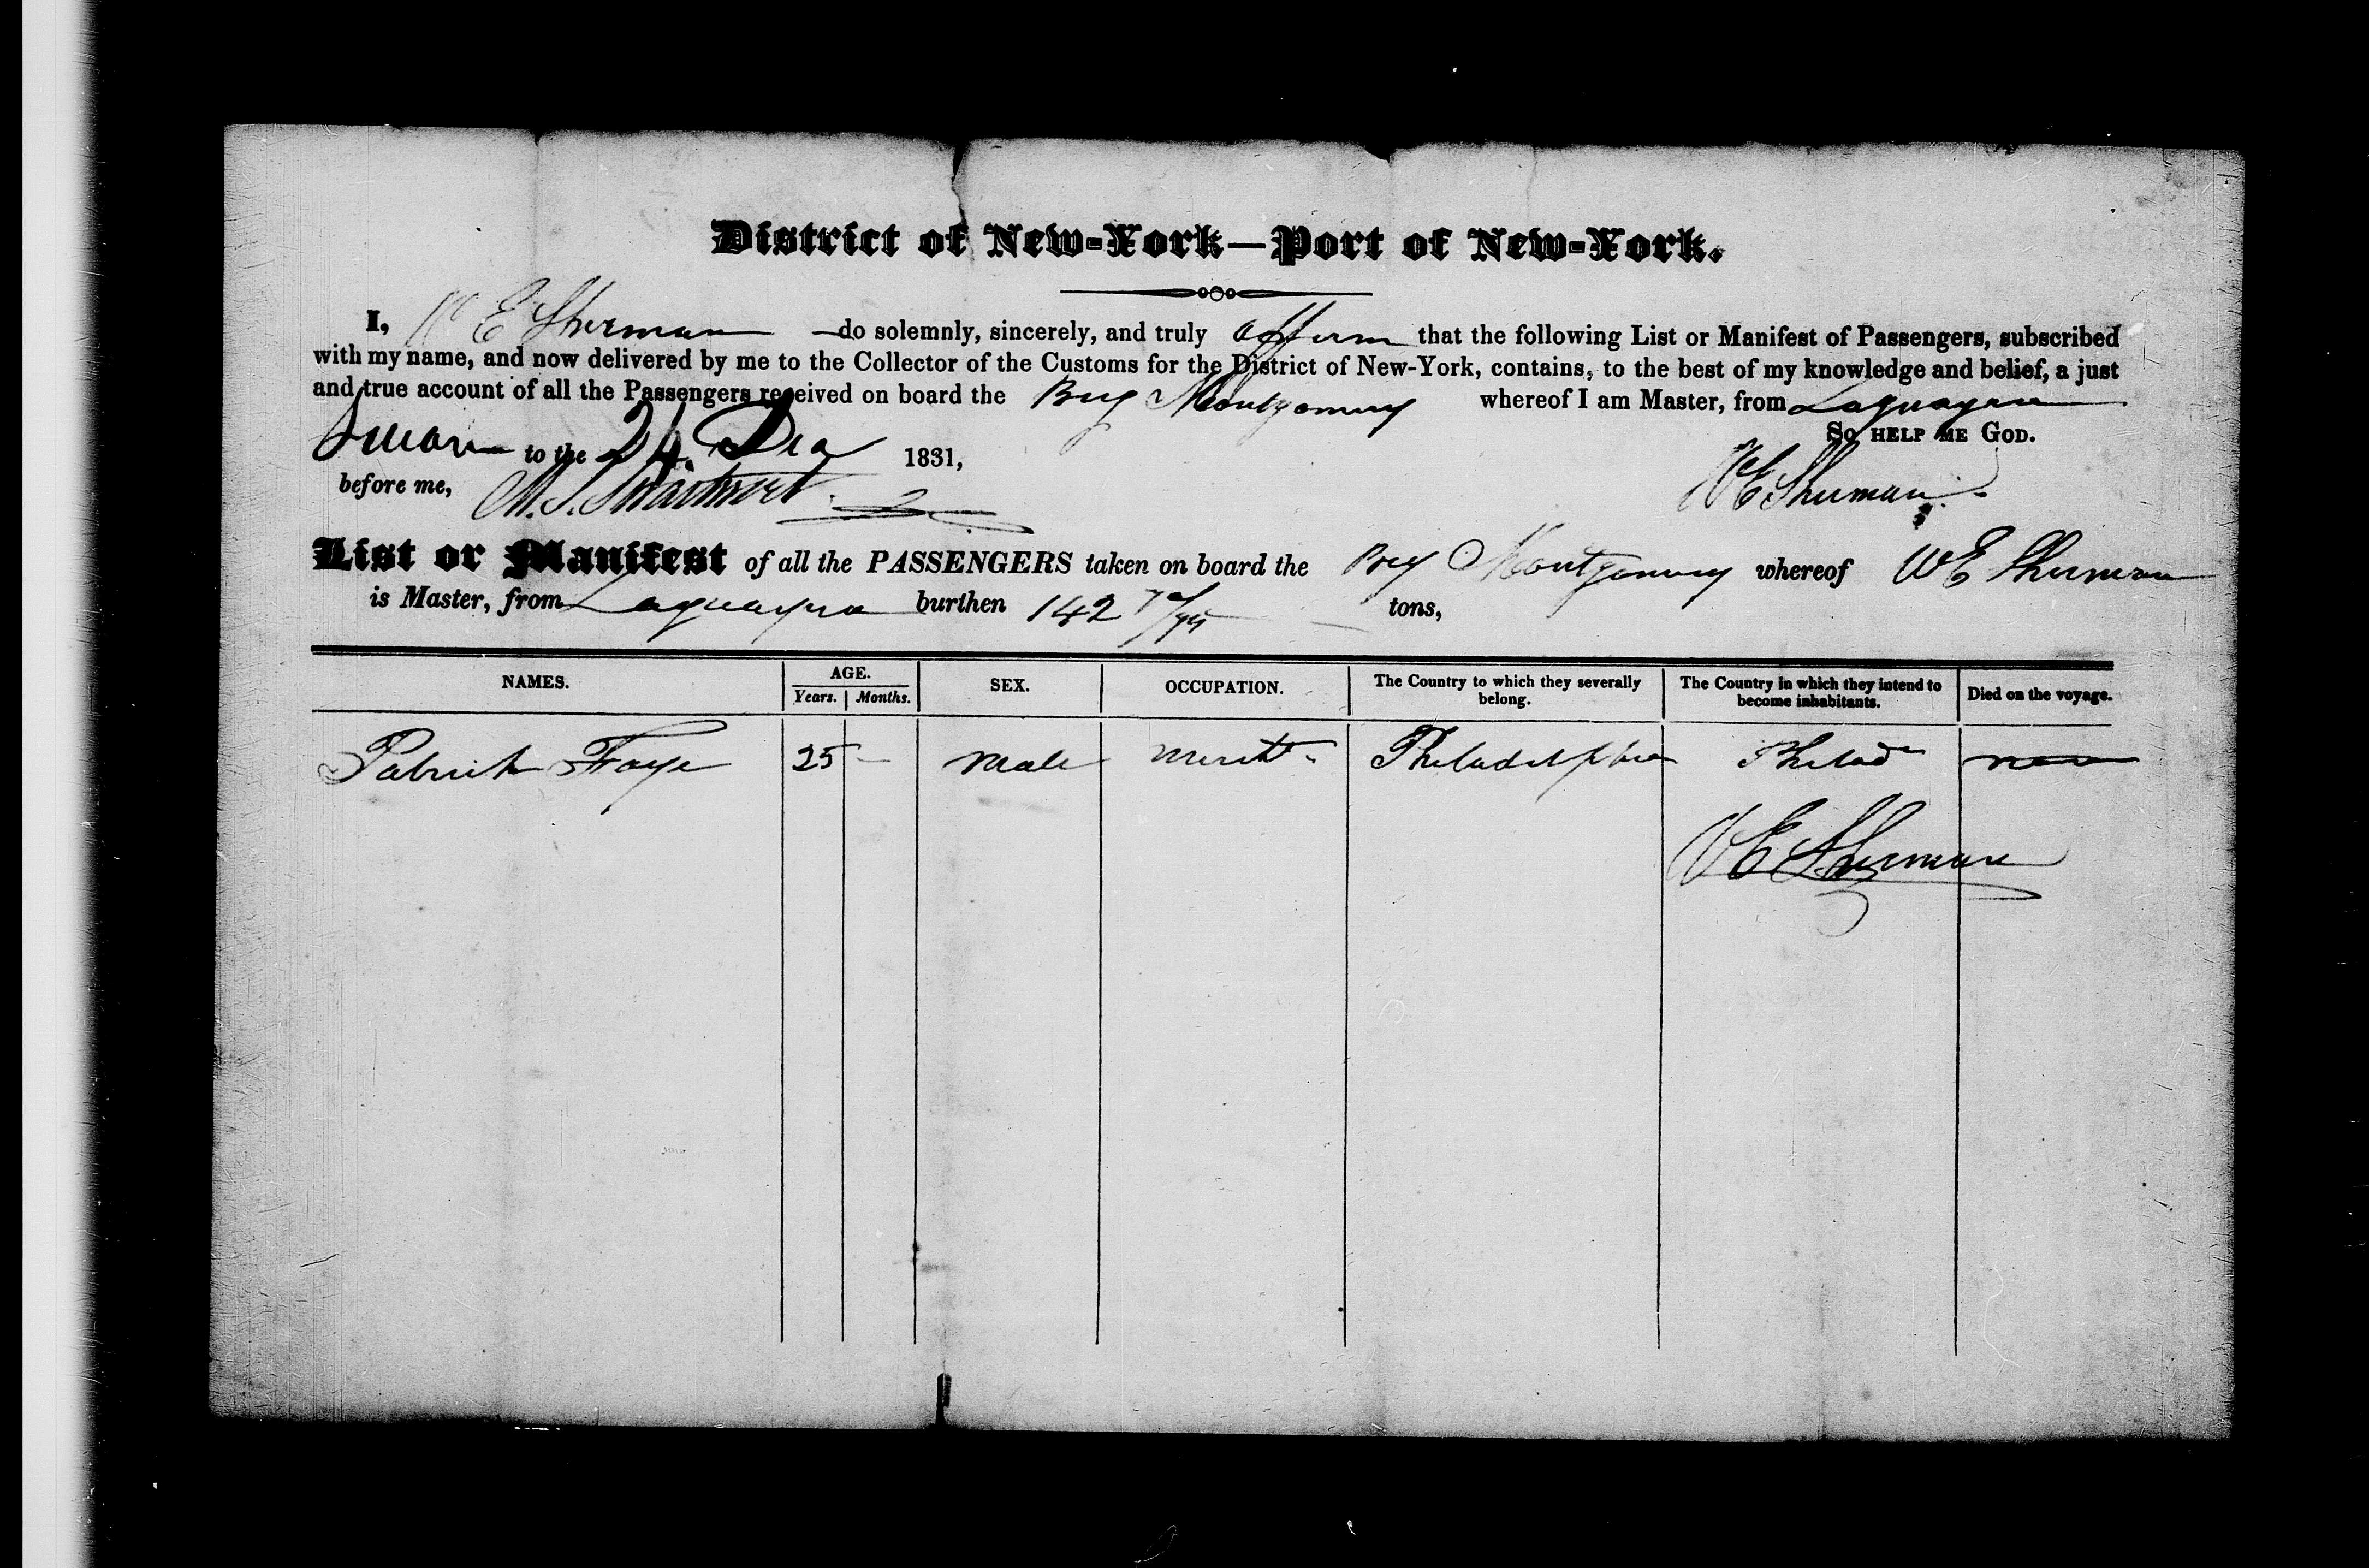 District of New-York—Port of New-York.
I, W E Sherman do solemnly, sincerely, and truly affirm that the following List or Manifest of Passengers, subscribed
with my name, and now delivered by me to the Collector of the Customs for the District of New-York, contains, to the best of my knowledge and belief, a just
and true account of all the Passengers received on board the Brig Montgomery whereof I am Master, from Laguayra
So HELP ME GOD.
Sworn to the 24 Dec 1831,
before me, W E Sherman
List or Manifest of all the PASSENGERS taken on board the Brig Montgomery whereof W E Sherman
is Master, from Laguayra burthen 142 tons,
NAMES. AGE. SEX. OCCUPATION. The Country to which they severally belong. The Country in which they intend to become inhabitants. Died on the voyage.
Years. Months.
Patrick Faye 25 – Male Mercht Philadelphia Philada none
W E Sherman